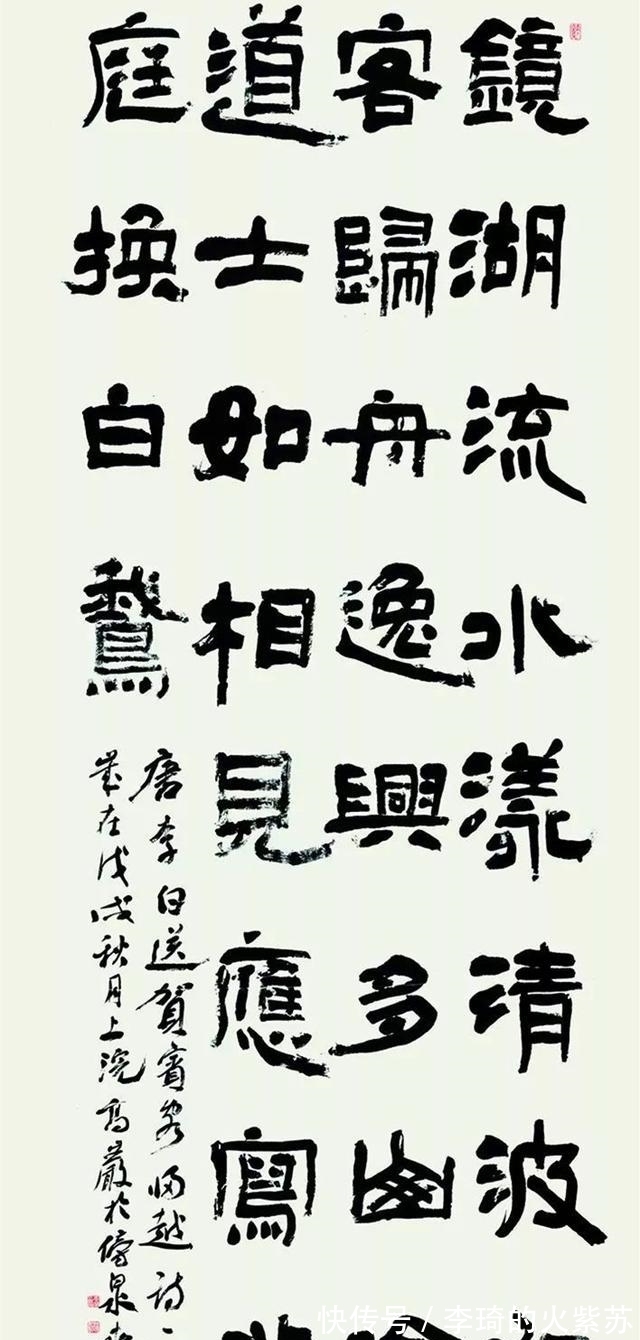 鏡湖流水漾清波
客歸舟逸興多山
道士如相見應寫
庭換白鵝
唐李白送賀賓客歸越詩一
歲在戊戌秋月上浣高嚴於傍泉
快传号 / 李琦的火紫苏